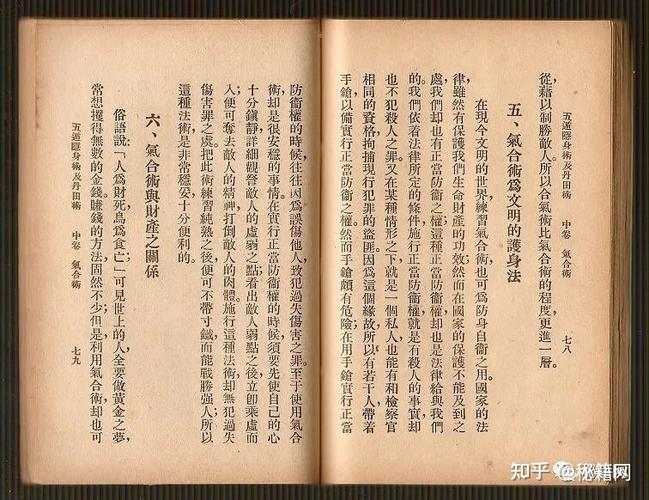 五遁隱身術及丹田術　中卷　氣合術　七八
從藉以制勝敵人。所以合氣術比氣合術的程度更進一層。
五、氣合術爲文明的護身法
在現今文明的世界練習氣合術也可爲防身自衞之用。國家的法
律雖然有保護我們生命財產的功效然而在國家的保護不能及到之
處我們却也有正當防衞之權這種正當防衞權却也是法律給與我們
的。我們依着法律所定的條件施行正當防衞權就是有殺人的事實却
也不犯殺人之罪。又在某種情形之下就是一個私人也能有和檢察官
相同的資格拘捕現行犯罪的盜匪因爲這個緣故所以有若干人帶着
手鎗以備實行正當防衞之權。然而手鎗頗有危險在用手鎗實行正當
防衞權的時候往往因爲誤傷他人致犯過失傷害之罪。至于使用氣合
術却是很安穩的事情在實行正當防衞權的時候須要先使自己的心
十分鎮靜詳細觀詧敵人的虛弱之點看出敵人弱點之後立卽乘虛而
入便可奪去敵人的精神打倒敵人的肉體。施行這種法術却無犯過失
傷害罪之處。把此術練習純熟之後便可不帶寸鐵而能戰勝强人。所以
這種法術是非常穩妥十分便利的。
六、氣合術與財產之關係
俗語說「人爲財死鳥爲食亡」可見世上的人全要做黃金之夢，
常想攫得無數的金錢。賺錢的方法固然不少，但是利用氣合術却也可
五遁隱身術及丹田術　中卷　氣合術　七九
知乎 @秘籍网